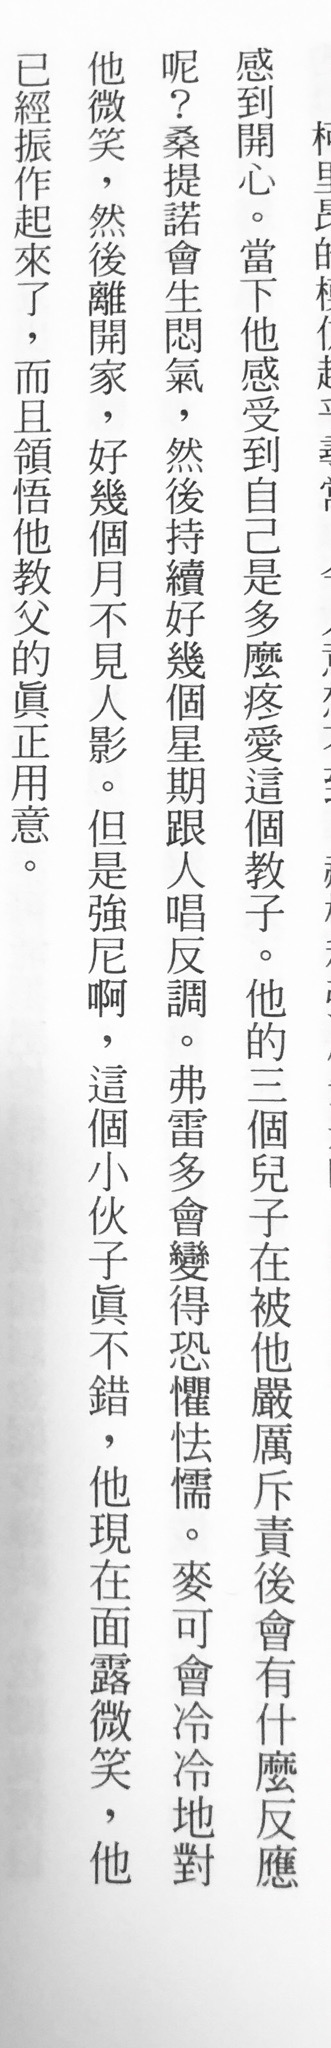 感到開心。當下他感受到自己是多麼疼愛這個教子。他的三個兒子在被他嚴厲斥責後會有什麼反應
呢？桑提諾會生悶氣，然後持續好幾個星期跟人唱反調。弗雷多會變得恐懼怯懦。麥可會冷冷地對
他微笑，然後離開家，好幾個月不見人影。但是強尼啊，這個小伙子眞不錯，他現在面露微笑，他
已經振作起來了，而且領悟他教父的眞正用意。